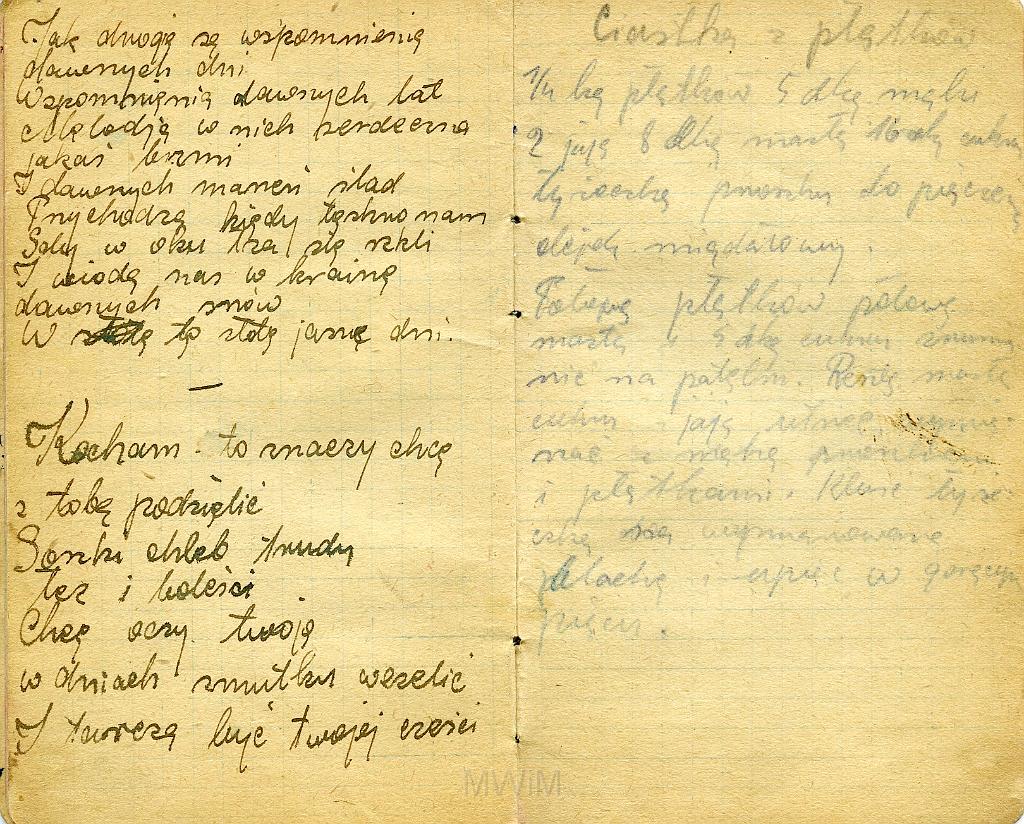 Jak drogie są wspomnienia
dawnych dni
Wspomnienia dawnych lat
Melodja w nich serdeczna
jakaś brzmi
I dawnych marzeń ślad
Przychodzą kiedy tęskno nam
Gdy w oku łza się szkli
I wiodą nas w krainę
dawnych snów
W tę złotą jasne dni.
—
Kocham - to znaczy chcę
z tobą podzielić
Gorzki chleb trudy
łez i boleści
Chcę oczy twoje
w dniach smutku weselić
I tarczą być twojej cześci
Ciastka z płatków
1/4 kg płatków 5 dkg mąki
2 jaja 8 dkg masła 10 dkg cukru
łyżeczka proszku do pieczenia
olejek migdałowy.
płatków połowę
masła i 5 dkg cukru
nie na patelni. Resztę masła
cukru jaja utrzeć,
szać z mąką
i płatkami. Kłaść łyże
czką na wysmarowaną
blachę i upiec w gorącym
piecu.
MWiM